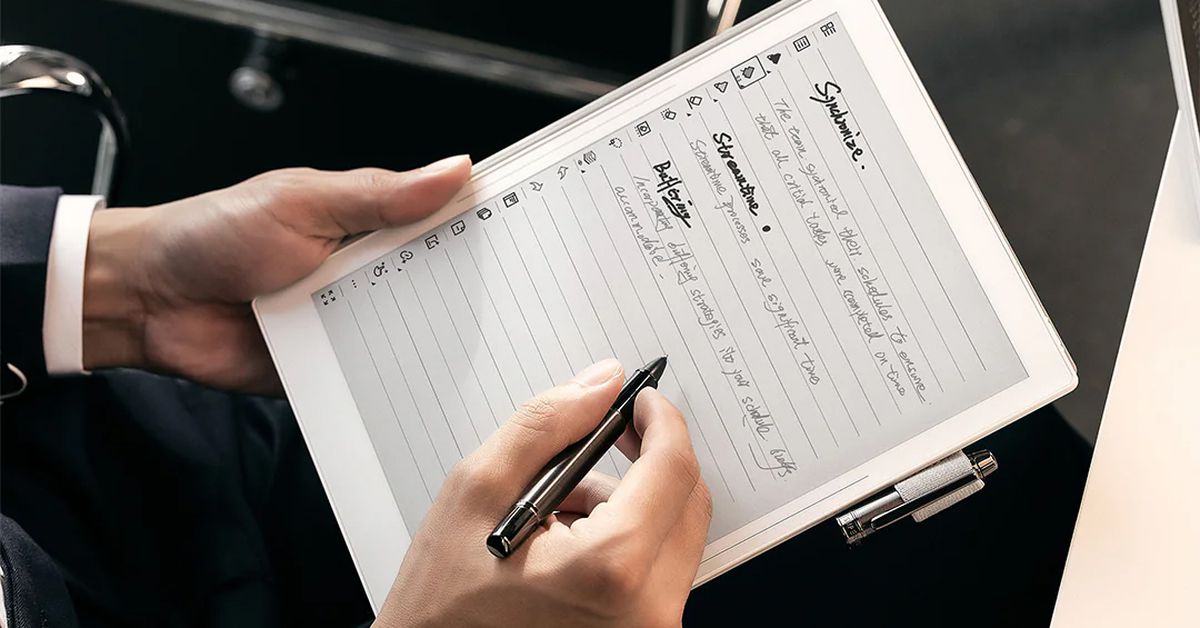 Synchronize.
The team synchronized their schedules to ensure
that all critical tasks were completed on time
Streamtime
Streamtime processes save significant time
Buffering
Incorporating buffering strategies into your schedule
accommodable.